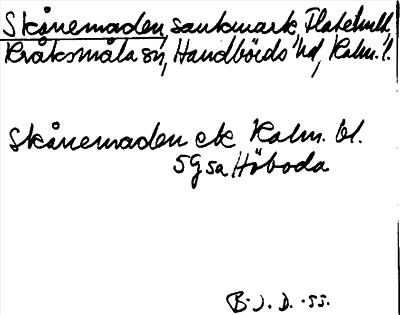 Skånemaden, sankmark, Flatehult,
Kråksmåla sn, Handbörds hd, Kalm. l.
Skånemaden ek Kalm. bl.
5G sa Höboda
B. J. D. -55.